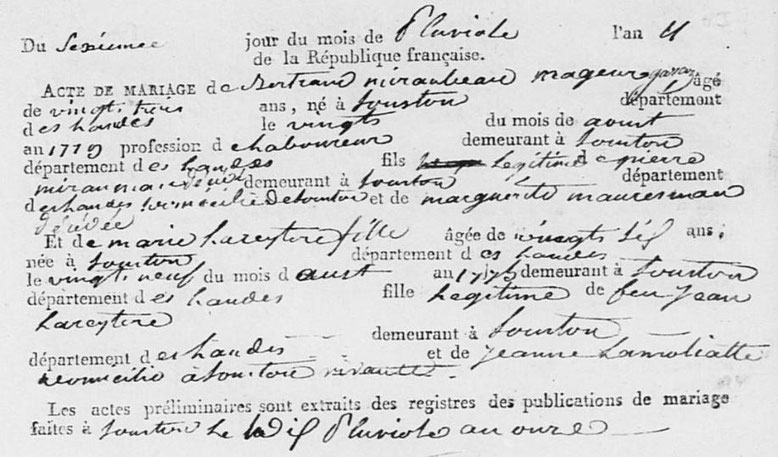 Du Sesieme jour du mois de Pluviose l'an 11
de la République française.
ACTE DE MARIAGE de Bertrand miraubeau mageur garçon âgé
de vingts trois ans, né à Souston département
des handes le vingts du mois de aoust
an 1779 profession de haboureur demeurant à Souston
département des handes fils legitime de pierre
demeurant à Souston département
deshandes de Souston et de marguerite mauresmau
désédée
Et de marie hareytere fille âgée de vingts ans,
née à Souston département des handes
le vingts neuf du mois d'aust an 1775 demeurant à Souston
département des handes fille hegitime de feu Jean
hareytere
demeurant à Souston
département des handes et de Jeanne Lamoliatte
à Souston vivante.
Les actes préliminaires sont extraits des registres des publications de mariage
faites à Souston he dis Pluviose an onse